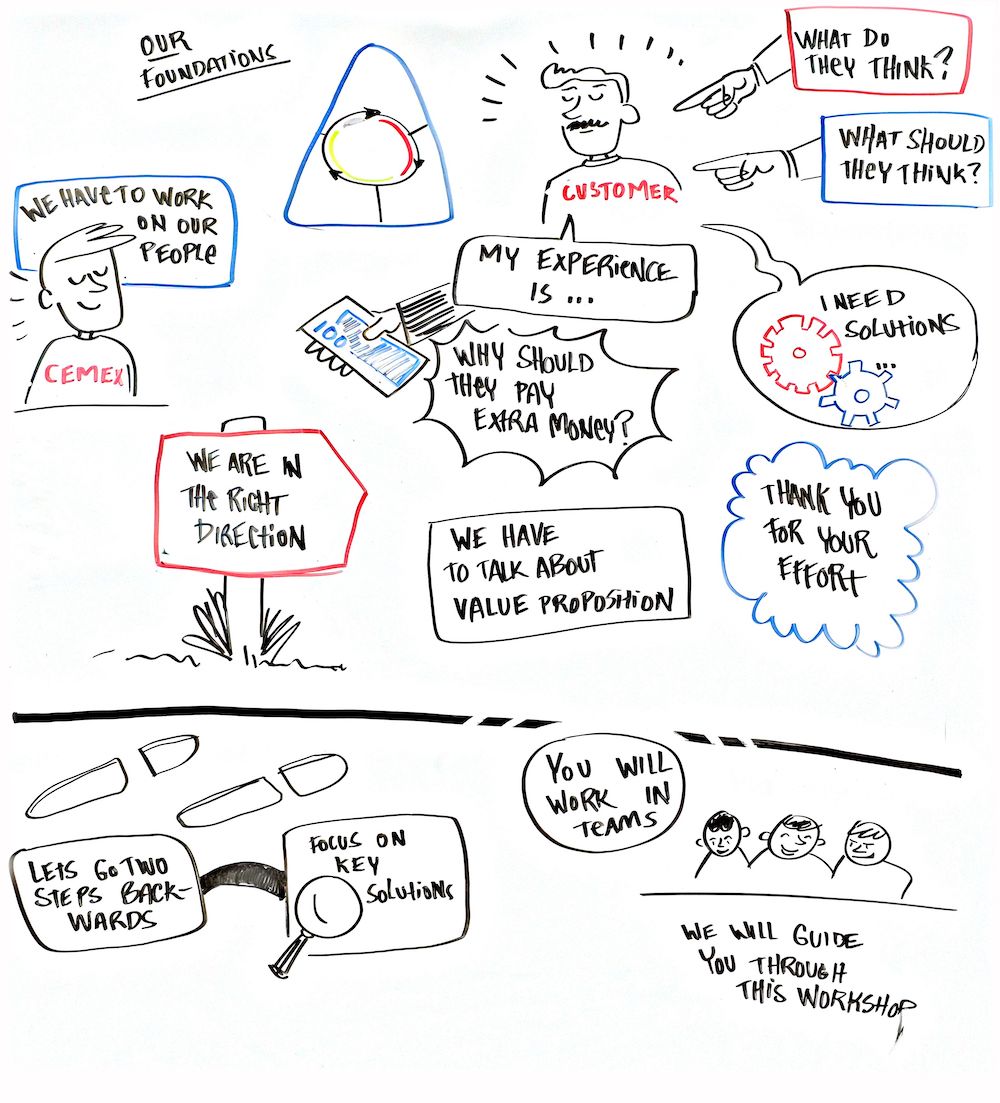 OUR
FOUNDATIONS
WHAT DO
THEY THINK?
WHAT SHOULD
THEY THINK?
CUSTOMER
WE HAVE TO WORK
ON OUR
PEOPLE
CEMEX
MY EXPERIENCE
IS ...
100
WHY SHOULD
THEY PAY
EXTRA MONEY?
I NEED
SOLUTIONS
...
WE ARE IN
THE RIGHT
DIRECTION
WE HAVE
TO TALK ABOUT
VALUE PROPOSITION
THANK YOU
FOR YOUR
EFFORT
LETS GO TWO
STEPS BACK-
WARDS
FOCUS ON
KEY
SOLUTIONS
YOU WILL
WORK IN
TEAMS
WE WILL GUIDE
YOU THROUGH
THIS WORKSHOP